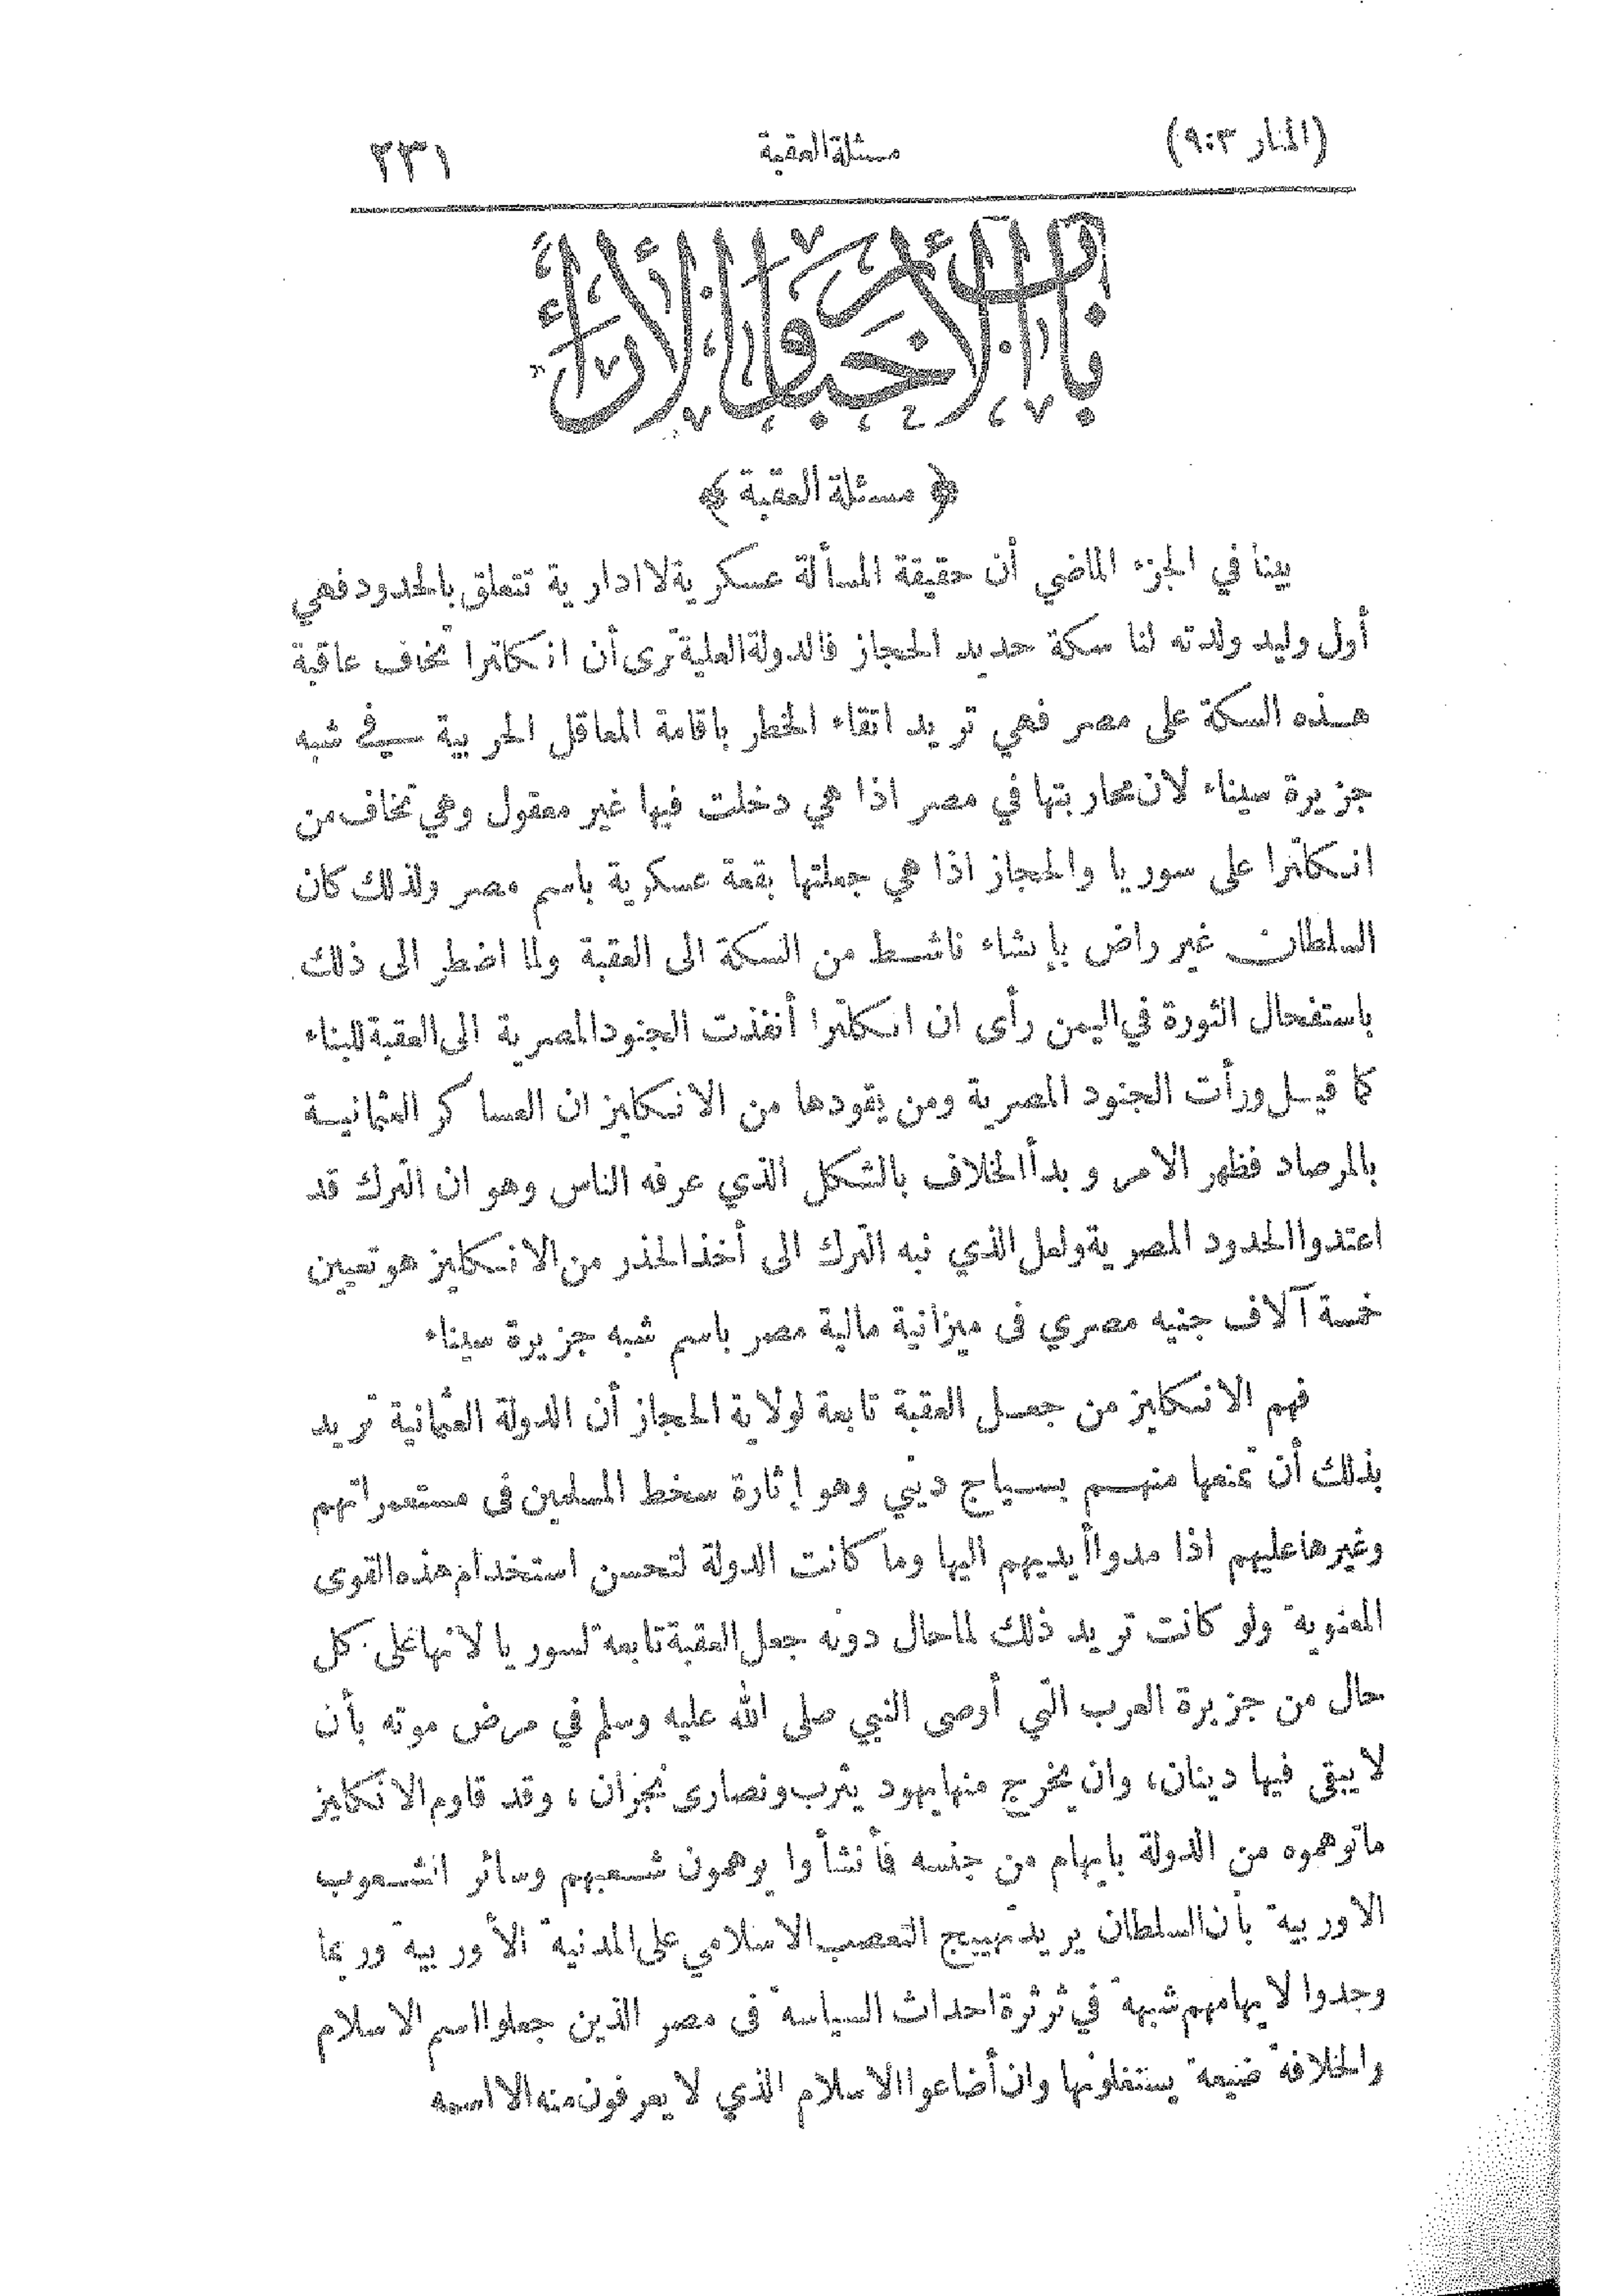 (المنار ٩:٣) مسئلة العقبة ٢٣١
باب الاخبار والآراء
﴿ مسئلة العقبة ﴾
بينا في الجزء الماضي أن حقيقة المسألة عسكرية لا ادارية تتعلق بالحدود فهي
أول وليد ولدته لنا سكة حديد الحجاز فالدولة العلية ترى أن انكلترا تخاف عاقبة
هذه السكة على مصر فهي تريد اتقاء الخطر باقامة المعاقل الحربية في شبه
جزيرة سيناء لان محاربتها في مصر اذا هي دخلت فيها غير معقول وهي تخاف من
انكلترا على سوريا والحجاز اذا هي جعلتها بقعة عسكرية باسم مصر ولذلك كان
السلطان غير راض بإنشاء ناشط من السكة الى العقبة ولما اضطر الى ذلك
باستفحال الثورة في اليمن رأى ان انكلترا أنفذت الجنود المصرية الى العقبة للبناء
كما قيل ورأت الجنود المصرية ومن يقودها من الانكليز ان العساكر العثمانية
بالمرصاد فظهر الامر وبدأ الخلاف بالشكل الذي عرفه الناس وهو ان الترك قد
اعتدوا الحدود المصرية ولعل الذي نبه الترك الى أخذ الحذر من الانكليز هو تعيين
خمسة آلاف جنيه مصري في ميزانية مالية مصر باسم شبه جزيرة سيناء
فهم الانكليز من جعل العقبة تابعة لولاية الحجاز أن الدولة العثمانية تريد
بذلك أن تمنعها منهم بسياج ديني وهو إثارة سخط المسلمين في مستعمراتهم
وغيرها عليهم اذا مدوا أيديهم اليها وما كانت الدولة لتحسن استخدام هذه القوى
المعنوية ولو كانت تريد ذلك لما حال دونه جعل العقبة تابعة لسوريا لانها على كل
حال من جزيرة العرب التي أوصى النبي صلى الله عليه وسلم في مرض موته بأن
لا يبقى فيها دينان، وان يخرج منها يهود يثرب ونصارى نجران ، وقد قاوم الانكليز
ما توهموه من الدولة بايهام من جنسه فأنشأوا يوهمون شعبهم وسائر الشعوب
الاوربية بأن السلطان يريد تهييج التعصب الاسلامي على المدنية الأوربية وربما
وجدوا لايهامهم شبهة في ثرثرة احداث السياسة في مصر الذين جعلوا اسم الاسلام
والخلافة ضيعة يستغلونها وان أضاعوا الاسلام الذي لا يعرفون منه الا اسمه